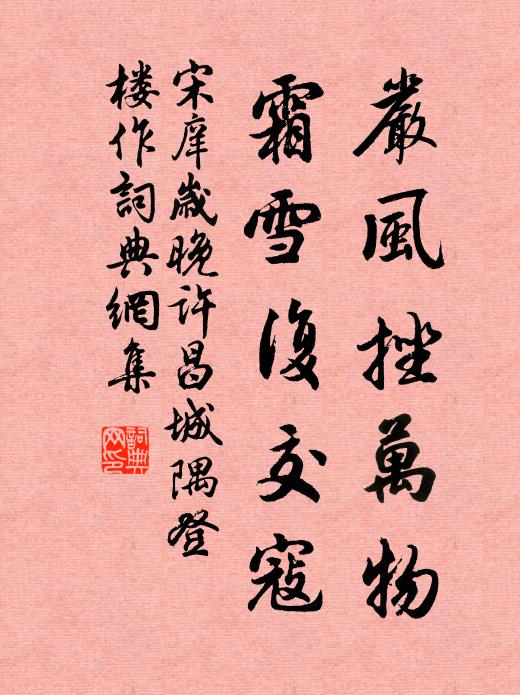 嚴風挫萬物
霜雪復交寇
宋庠歲晚許昌城隅登
楼作詞典網集
詞典网印